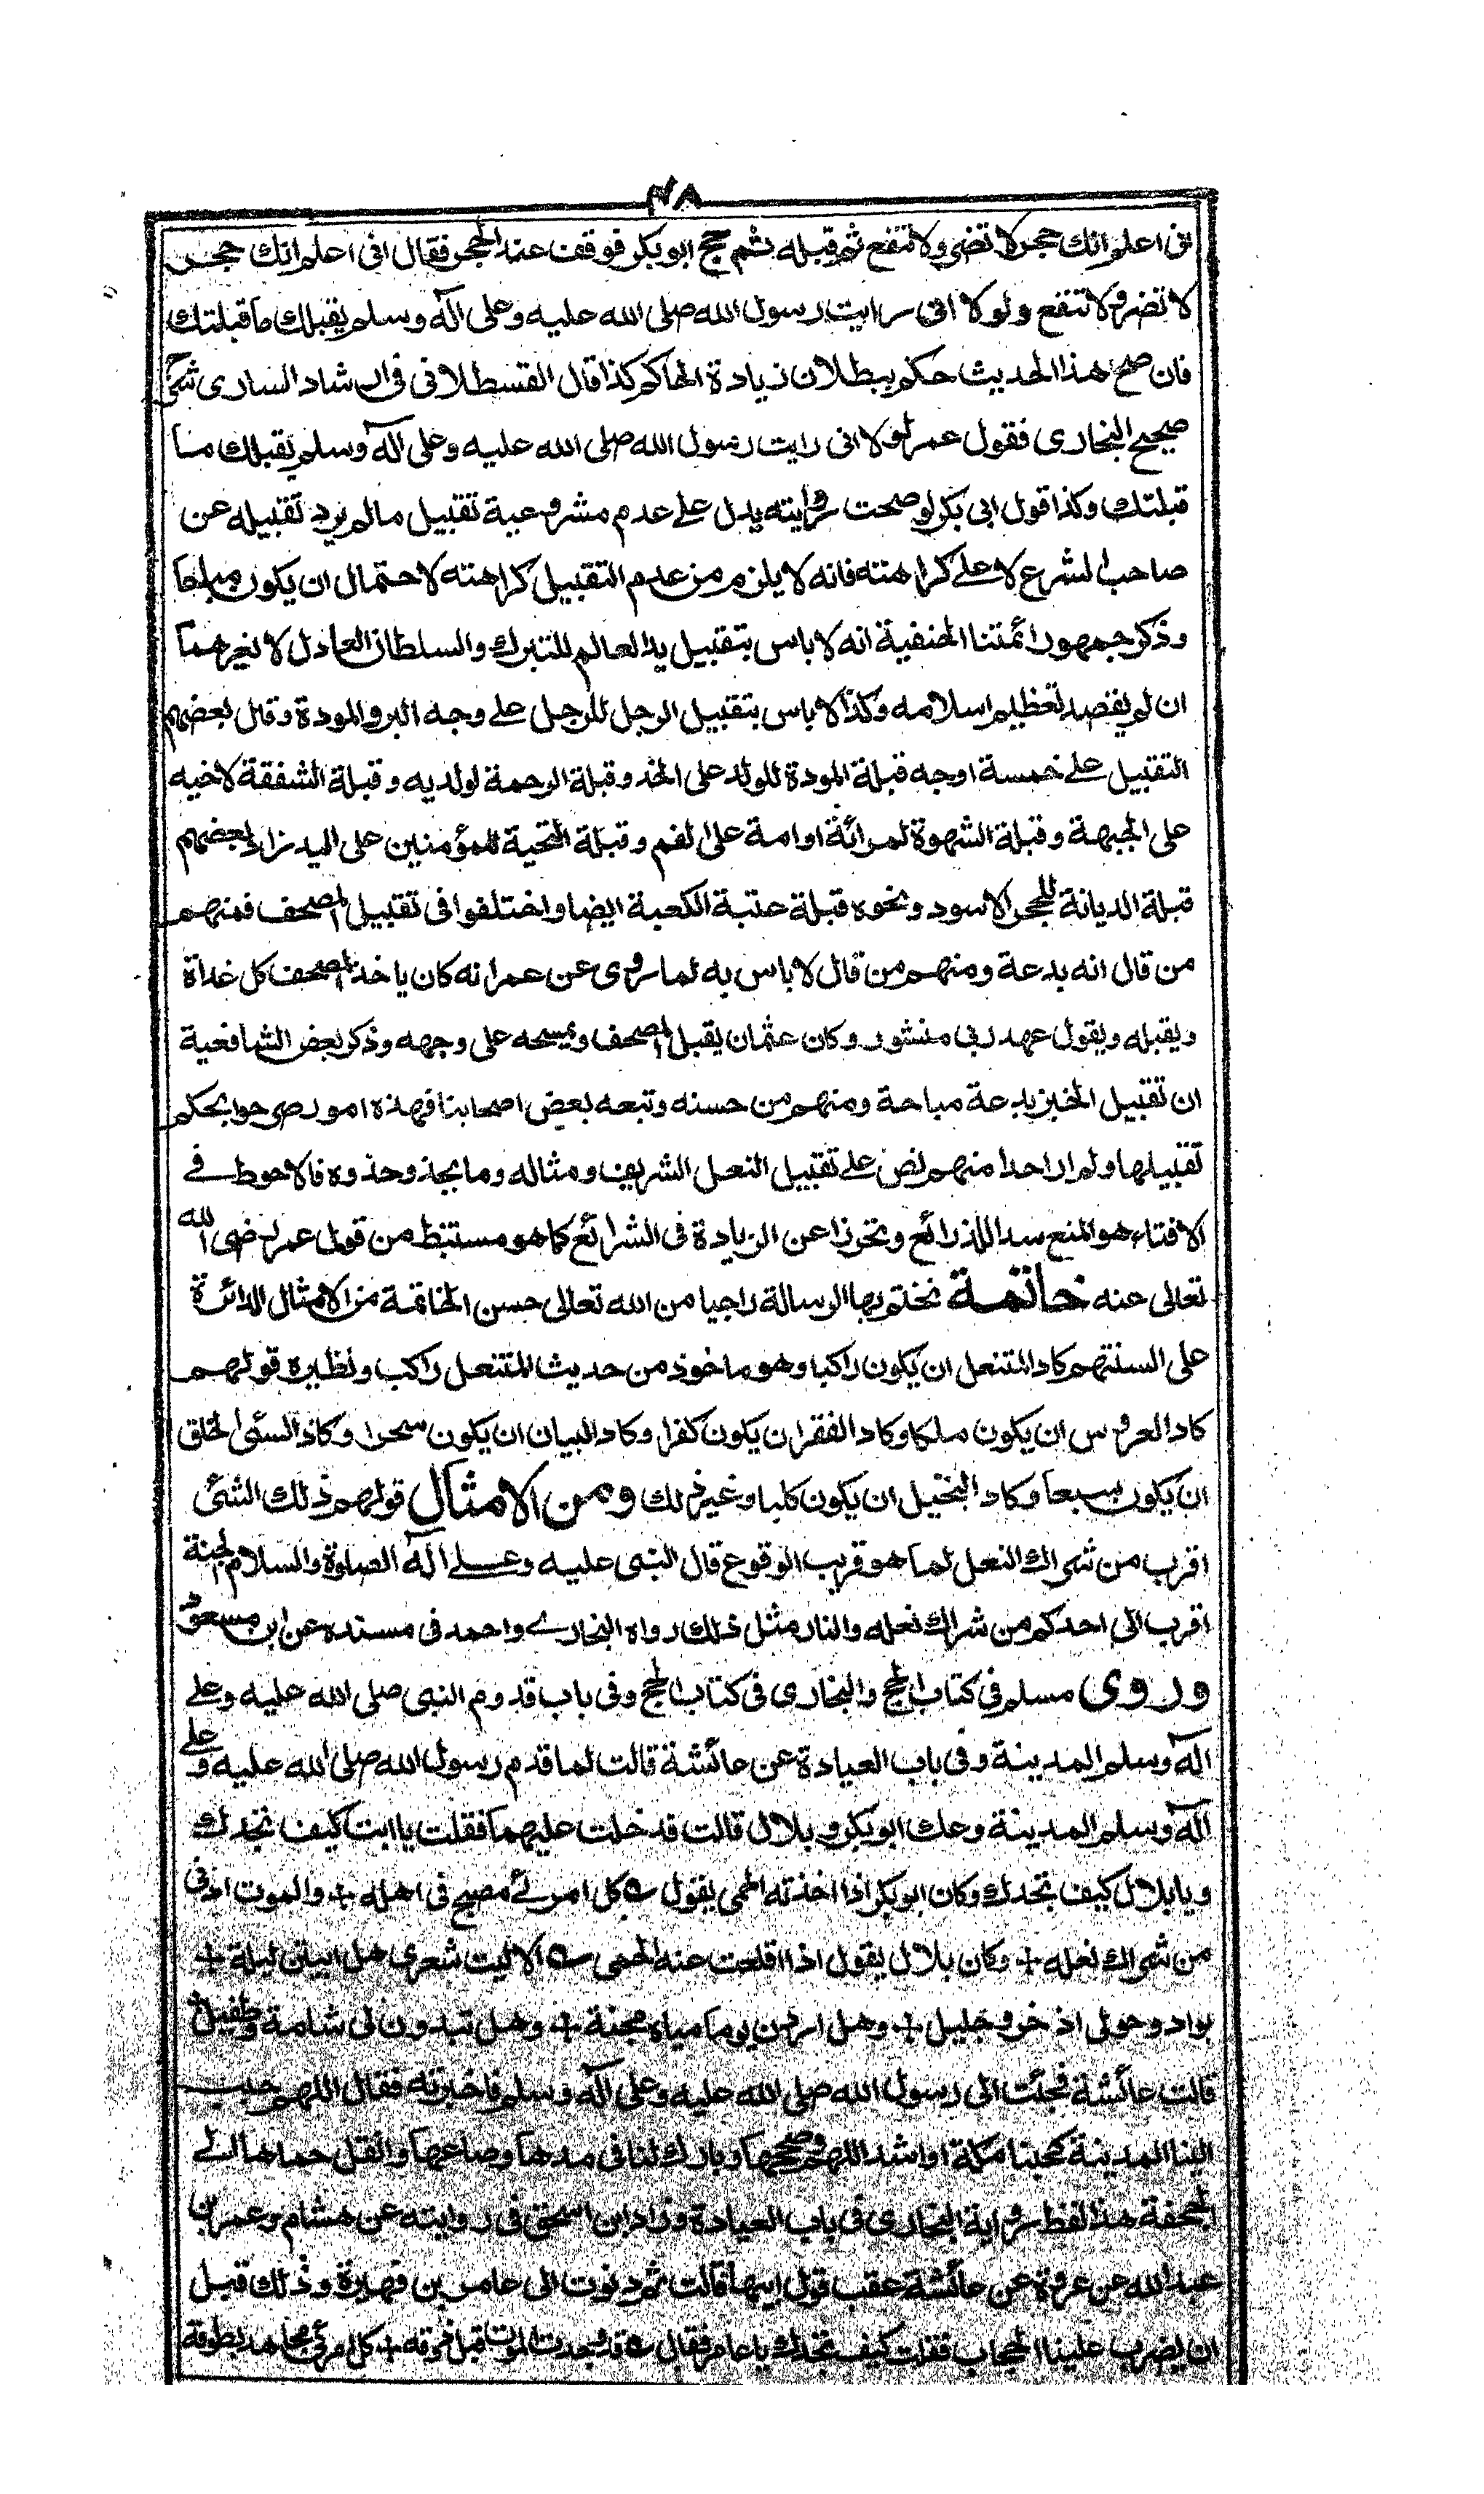 ٤٨
انی اعلم انك حجر لا تضر ولا تنفع ثم قبله ثم حج ابو بكر فوقف عند الحجر فقال انی اعلم انك حجر
لا تضر ولا تنفع ولولا انی رايت رسول الله صلی الله عليه وعلی آله وسلم يقبلك ما قبلتك
فان صح هذا الحديث حكم ببطلان زيادة الحاكم كذا قال القسطلانی فی ارشاد الساری شرح
صحيح البخاری فقول عمر لولا انی رايت رسول الله صلی الله عليه وعلی آله وسلم يقبلك ما
قبلتك وكذا قول ابی بكر لو صحت روايته يدل علے عدم مشروعية تقبيل ما لم يرد تقبيله عن
صاحب الشرع لا علے كراهته فانه لا يلزم من عدم التقبيل كراهته لاحتمال ان يكون مباحا
وذكر جمهور ائمتنا الحنفية انه لا باس بتقبيل يد العالم للتبرك والسلطان العادل لا لغيرهما
ان لم يقصد تعظيم اسلامه وكذا لا باس بتقبيل الرجل للرجل علے وجه البر والمودة وقال بعضهم
التقبيل علے خمسة اوجه قبلة المودة للولد علی الخد وقبلة الرحمة لوالديه وقبلة الشفقة لاخيه
علی الجبهة وقبلة الشهوة لمرأته او امة علی الفم وقبلة التحية للمؤمنين علی اليد زاد بعضهم
قبلة الديانة للحجر الاسود ونحوه قبلة عتبة الكعبة ايضا واختلفوا فی تقبيل المصحف فمنهم
من قال انه بدعة ومنهم من قال لا باس به لما روی عن عمر انه كان ياخذ المصحف كل غداة
ويقبله ويقول عهد ربی منشور وكان عثمان يقبل المصحف ويمسحه علی وجهه وذكر بعض الشافعية
ان تقبيل الخبز بدعة مباحة ومنهم من حسنه وتبعه بعض اصحابنا فهذه امور صرحوا بحكم
تقبيلها ولم ار احدا منهم نص علے تقبيل النعل الشريف ومثاله وما يحذو حذوه فالاحوط فے
الافتاء هو المنع سدا للذرائع وتحرزا عن الزيادة فی الشرائع كما هو مستنبط من قول عمر رضی الله
تعالی عنه خاتمة نختم بها الرسالة راجيا من الله تعالی حسن الخاتمة من الامثال الدائرة
علی السنتهم كاد المتنعل ان يكون راكبا وهو ماخوذ من حديث المتنعل راكب ونظيره قولهم
كاد العروس ان يكون ملكا وكاد الفقر ان يكون كفرا وكاد البيان ان يكون سحرا وكاد السئ الخلق
ان يكون سبعا وكاد البخيل ان يكون كلبا وغير ذلك ومن الامثال قولهم ذلك الشئ
اقرب من شراك النعل لما هو قريب الوقوع قال النبی عليه وعلے آله الصلوة والسلام الجنة
اقرب الی احدكم من شراك نعله والنار مثل ذلك رواه البخارے واحمد فی مسنده عن ابن مسعود
وروی مسلم فی كتاب الحج والبخاری فی كتاب الحج وفی باب قدوم النبی صلی الله عليه وعلے
آله وسلم المدينة وفی باب العيادة عن عائشة قالت لما قدم رسول الله صلی الله عليه وعلے
آله وسلم المدينة وعك ابو بكر وبلال قالت فدخلت عليهما فقلت يا ابت كيف تجدك
ويا بلال كيف تجدك وكان ابو بكر اذا اخذته الحمی يقول ؎ كل امرئ مصبح فی اهله + والموت ادنی
من شراك نعله + وكان بلال يقول اذا اقلعت عنه الحمی ؎ الا ليت شعری هل ابيتن ليلة +
بواد وحولی اذخر وجليل + وهل اردن يوما مياه مجنة + وهل تبدون لی شامة وطفيل
قالت عائشة فجئت الی رسول الله صلی الله عليه وعلی آله وسلم فاخبرته فقال اللهم حبب
الينا المدينة كحبنا مكة او اشد اللهم وصححها وبارك لنا فی مدها وصاعها وانقل حماها الے
الجحفة هذا لفظ رواية البخاری فی باب العيادة وزاد ابن اسحق فی روايته عن هشام وعمر بن
عبد الله عن عروة عن عائشة عقب قول ابيها قالت ثم دنوت الی عامر بن فهيرة وذلك قبل
ان يضرب علينا الحجاب فقلت كيف تجدك يا عامر فقال ؎ قد وجدت الموت قبل ذوقه + كل امرئ مجاهد بطوقه